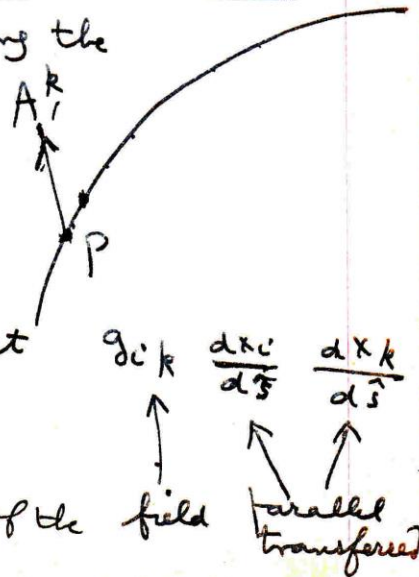 ng the
A^k
P
t g_{ik} dx_i/dŝ dx_k/dŝ
of the field parallel
transferred